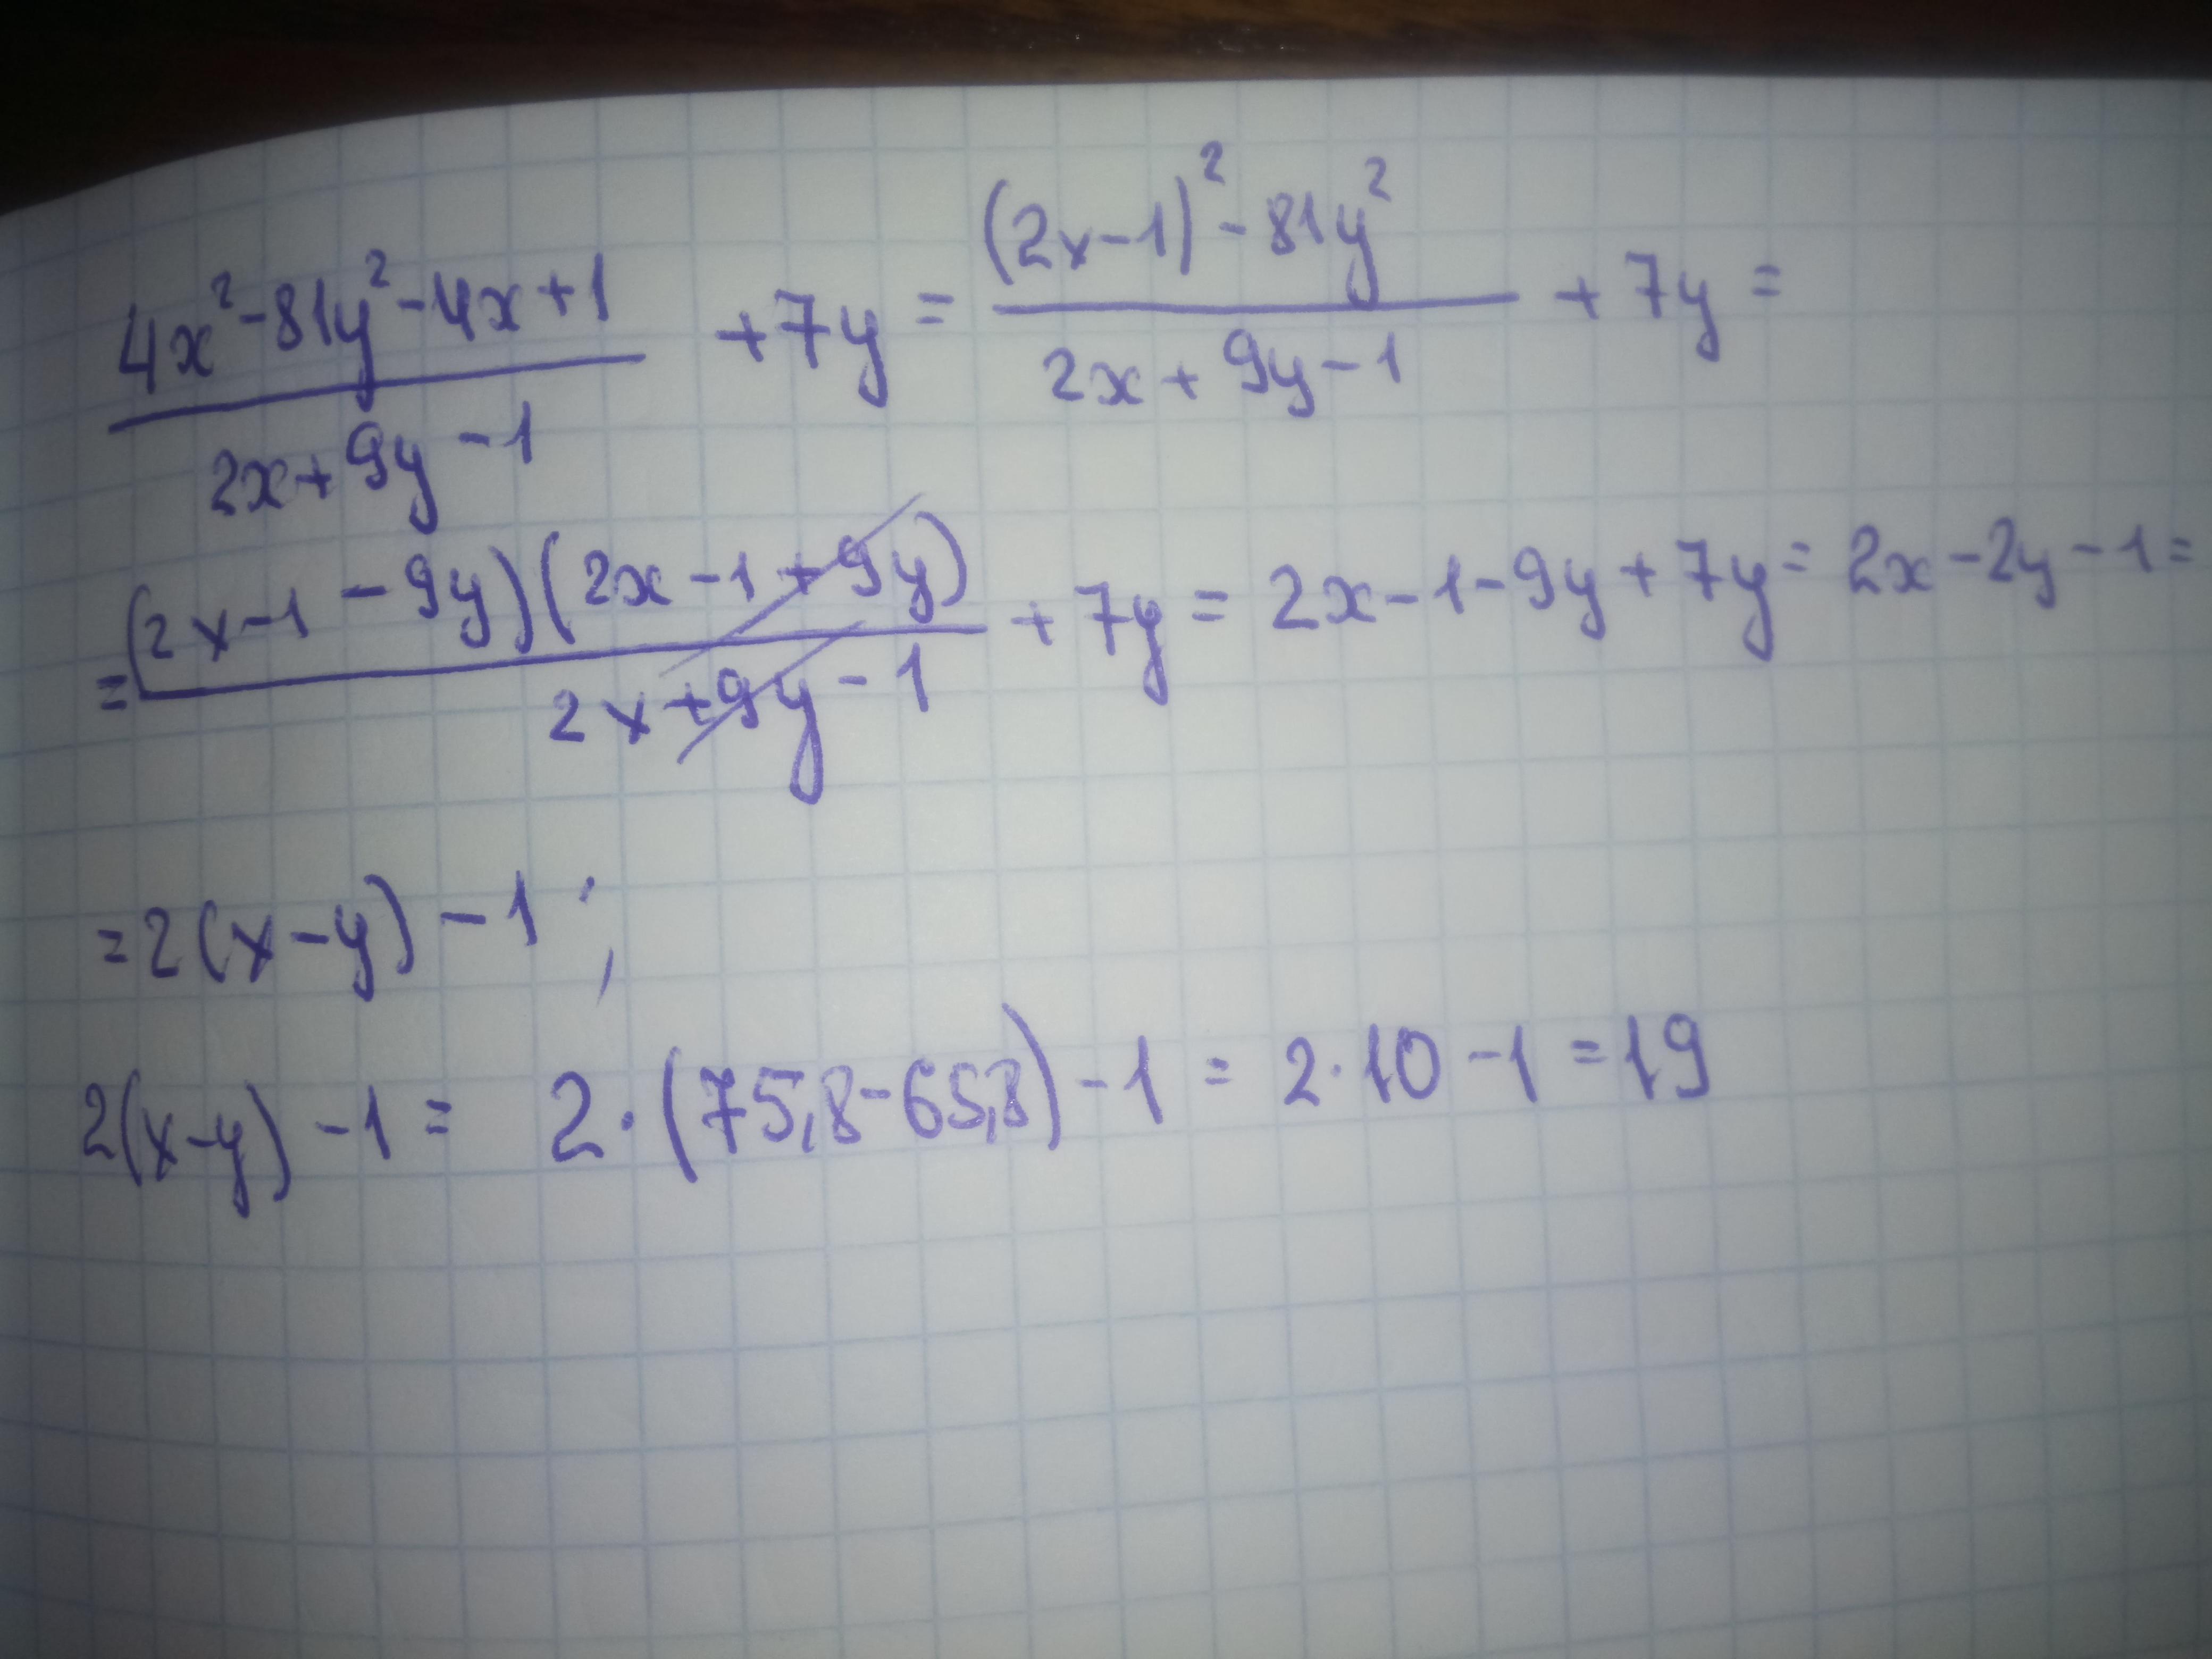 (4x² - 81y² - 4x + 1)/(2x + 9y - 1) + 7y = ((2x - 1)² - 81y²)/(2x + 9y - 1) + 7y =
= ((2x - 1 - 9y)(2x - 1 + 9y))/(2x + 9y - 1) + 7y = 2x - 1 - 9y + 7y = 2x - 2y - 1 =
= 2(x - y) - 1 ;
2(x - y) - 1 = 2 · (75,8 - 65,8) - 1 = 2 · 10 - 1 = 19